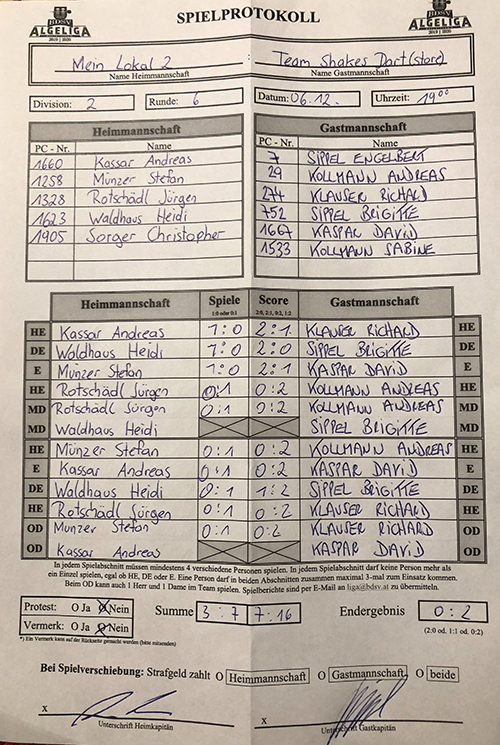 BDSV ALGELIGA 2019 | 2020
SPIELPROTOKOLL
BDSV ALGELIGA 2019 | 2020
Mein Lokal 2 Team Shakes Dart (store)
Name Heimmannschaft Name Gastmannschaft
Division: 2 Runde: 6 Datum: 06.12. Uhrzeit: 19⁰⁰
Heimmannschaft Gastmannschaft
PC - Nr. Name PC - Nr. Name
1660 Kassar Andreas 7 SIPPEL ENGELBERT
1258 Münzer Stefan 29 KOLLMANN ANDREAS
1328 Rotschädl Jürgen 274 KLAUSER RICHARD
1623 Waldhaus Heidi 752 SIPPEL BRIGITTE
1905 Sorger Christopher 1667 KASPAR DAVID
1533 KOLLMANN SABINE
Heimmannschaft Spiele 1:0 oder 0:1 Score 2:0, 2:1, 0:2, 1:2 Gastmannschaft
HE Kassar Andreas 1:0 2:1 KLAUSER RICHARD HE
DE Waldhaus Heidi 1:0 2:0 SIPPEL BRIGITTE DE
E Münzer Stefan 1:0 2:1 KASPAR DAVID E
HE Rotschädl Jürgen 0:1 0:2 KOLLMANN ANDREAS HE
MD Rotschädl Jürgen 0:1 0:2 KOLLMANN ANDREAS MD
MD Waldhaus Heidi SIPPEL BRIGITTE MD
HE Münzer Stefan 0:1 0:2 KOLLMANN ANDREAS HE
E Kassar Andreas 0:1 0:2 KASPAR DAVID E
DE Waldhaus Heidi 0:1 1:2 SIPPEL BRIGITTE DE
HE Rotschädl Jürgen 0:1 0:2 KLAUSER RICHARD HE
OD Münzer Stefan 0:1 0:2 KLAUSER RICHARD OD
OD Kassar Andreas KASPAR DAVID OD
In jedem Spielabschnitt müssen mindestens 4 verschiedene Personen spielen. In jedem Spielabschnitt darf keine Person mehr als
ein Einzel spielen, egal ob HE, DE oder E. Eine Person darf in beiden Abschnitten zusammen maximal 3-mal zum Einsatz kommen.
Beim OD kann auch 1 Herr und 1 Dame im Team spielen. Spielberichte sind per E-Mail an liga@bdsv.at zu übermitteln.
Protest: O Ja O Nein Summe 3:7 7:16 Endergebnis 0:2
Vermerk: O Ja O Nein (2:0 od. 1:1 od. 0:2)
*) Ein Vermerk kann auf der Rückseite gemacht werden (bitte mitsenden)
Bei Spielverschiebung: Strafgeld zahlt O Heimmannschaft O Gastmannschaft O beide
x x
Unterschrift Heimkapitän Unterschrift Gastkapitän